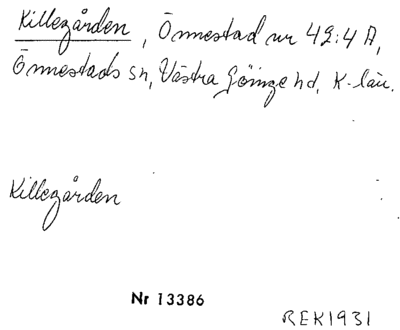 Killegården, Önnestad nr 42:4 A,
Önnestads sn, Västra Göinge hd, K-län.
Killegården
Nr 13386
REK1931